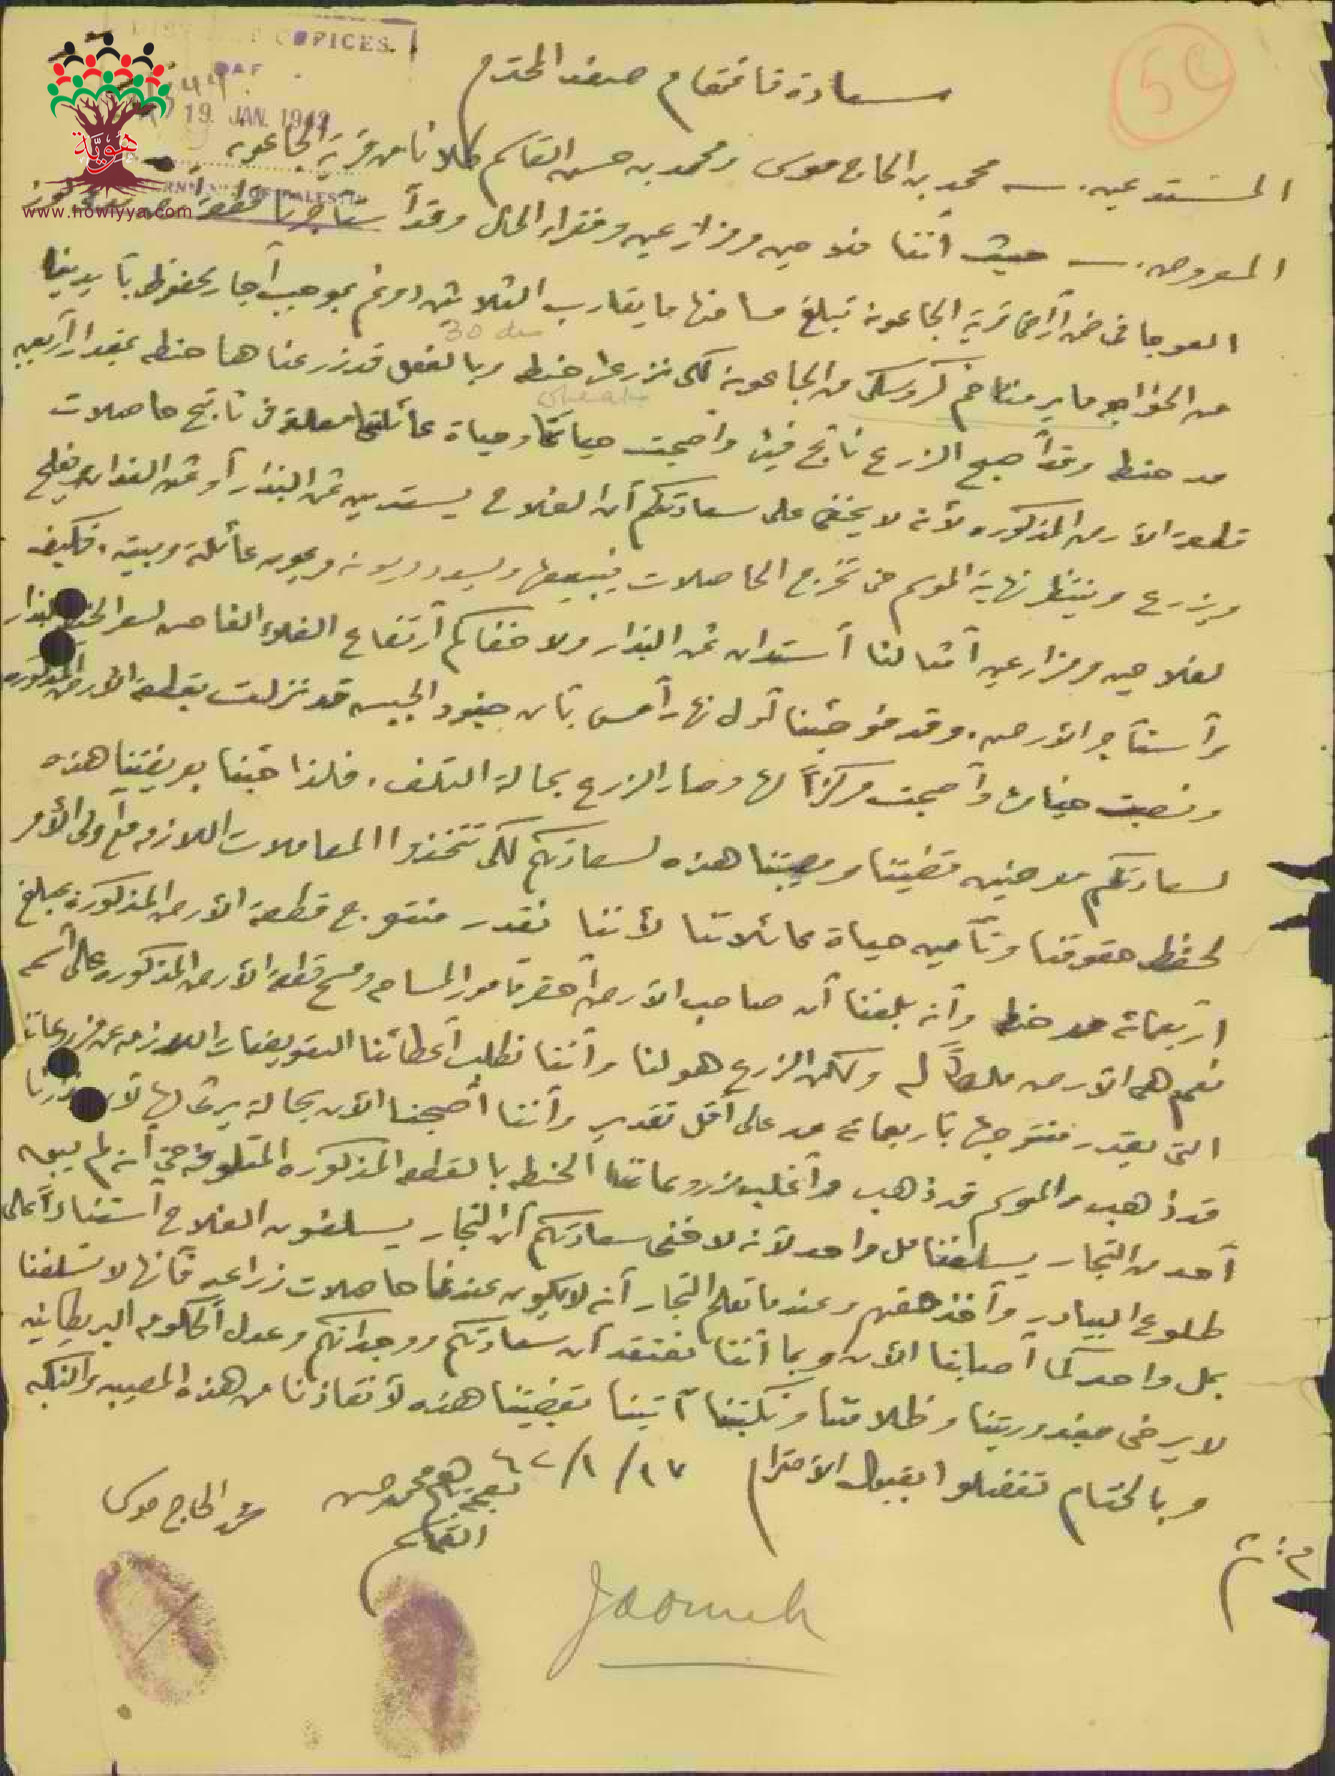 DISTRICT OFFICES.
SAFAD
19 JAN. 1942
GOVERNMENT OF PALESTINE
هوية
www.howiyya.com
سعادة قائمقام صفد المحترم
المستدعيين :ـ محمد بن الحاج موسى ومحمد بن حسن القاسم كلانا من قرية الجاعونة
المعروض :ـ حيث أننا فلاحين ومزارعين وفقراء الحال وقد أستأجرنا قطعة
العوجا في ضمن أراضي قرية الجاعونة تبلغ مسافتها ما يقارب الثلاثين دونم بموجب آجار محفوظ بأيدينا
30 du
من الخواجه من الجاعونة لكي نزرعها حنطه وبالفعل قد زرعناها حنطه بمقدار أربعه
wheat
مد حنطه وقد أصبح الزرع ناتج وأصبحت حياتنا وحياة عائلتنا معلقة في ناتج حاصلات
قطعة الأرض المذكوره لأنه لا يخفى على سعادتكم أن الفلاح يستدين ثمن البذار أو ثمن الفدان ويفلح
ويزرع وينتظر نهاية الموسم حتى تخرج الحاصلات فيبيعها ويسدد ديونه ويمون عائلته وبيته . فكيف
لفلاحين ومزارعين أمثالنا أستدان ثمن البذار ولا خفاكم أرتفاع الغلاء الفاحش لسعر البذار
وأستأجر الأرض . وقد فوجئنا أول نهار أمس بأن جنود الجيش قد نزلت بقطعة الأرض المذكوره
ونصبت خيامها وأصبحت مركزاً لها وصار الزرع بحالة التلف . فلذا جئنا بعريضتنا هذه
لسعادتكم موضحين قضيتنا ومصيبتنا هذه لسعادتكم لكي تتخذوا المعاملات اللازمه مع أولي الأمر
لحفظ حقوقنا وتأمين حياة عائلاتنا لأننا نقدر منتوج قطعة الأرض المذكورة بمبلغ
اربعمائة مد حنطه وأنه بلغنا أن صاحب الأرض أحضر مأمور المساحه ومسح قطعة الأرض المذكوره على أسمه
نعم هي الأرض ملكاً له ولكن الزرع هو لنا وأننا نطلب أعطائنا التعويضات اللازمه عن مزروعاتنا
التي يقدر منتوجها بأربعمائة مد على أقل تقدير وأننا أصبحنا الآن بحالة يرثى لها لأن بذارنا
قد ذهب والموسم قد ذهب وأغلب مزروعاتنا الحنطه بالقطعه المذكوره المتلوفه حتى أنه لم يبق
أحد من التجار يسلفنا مل واحد لأنه لا خفى سعادتكم أن التجار يسلفون الفلاح أستناداً على
طلوع البيادر وأخذ حقهم وعندما تعلم التجار أنه لا يكون عندنا حاصلات زراعيه فأنها لا تسلفنا
بمل واحد كما أصابنا الآن وبما أننا نعتقد أن سعادتكم ووجدانكم وعدل الحكومه البريطانيه
لا يرضى بمغدوريتنا وظلامتنا ونكبتنا أتينا بقضيتنا هذه لأنقاذنا من هذه المصيبه والنكبه
وبالختام تفضلوا بقبول الأحترام ١٧/١/٤٢
محمد حسن القاسم
محمد الحاج موسى
Jaouneh